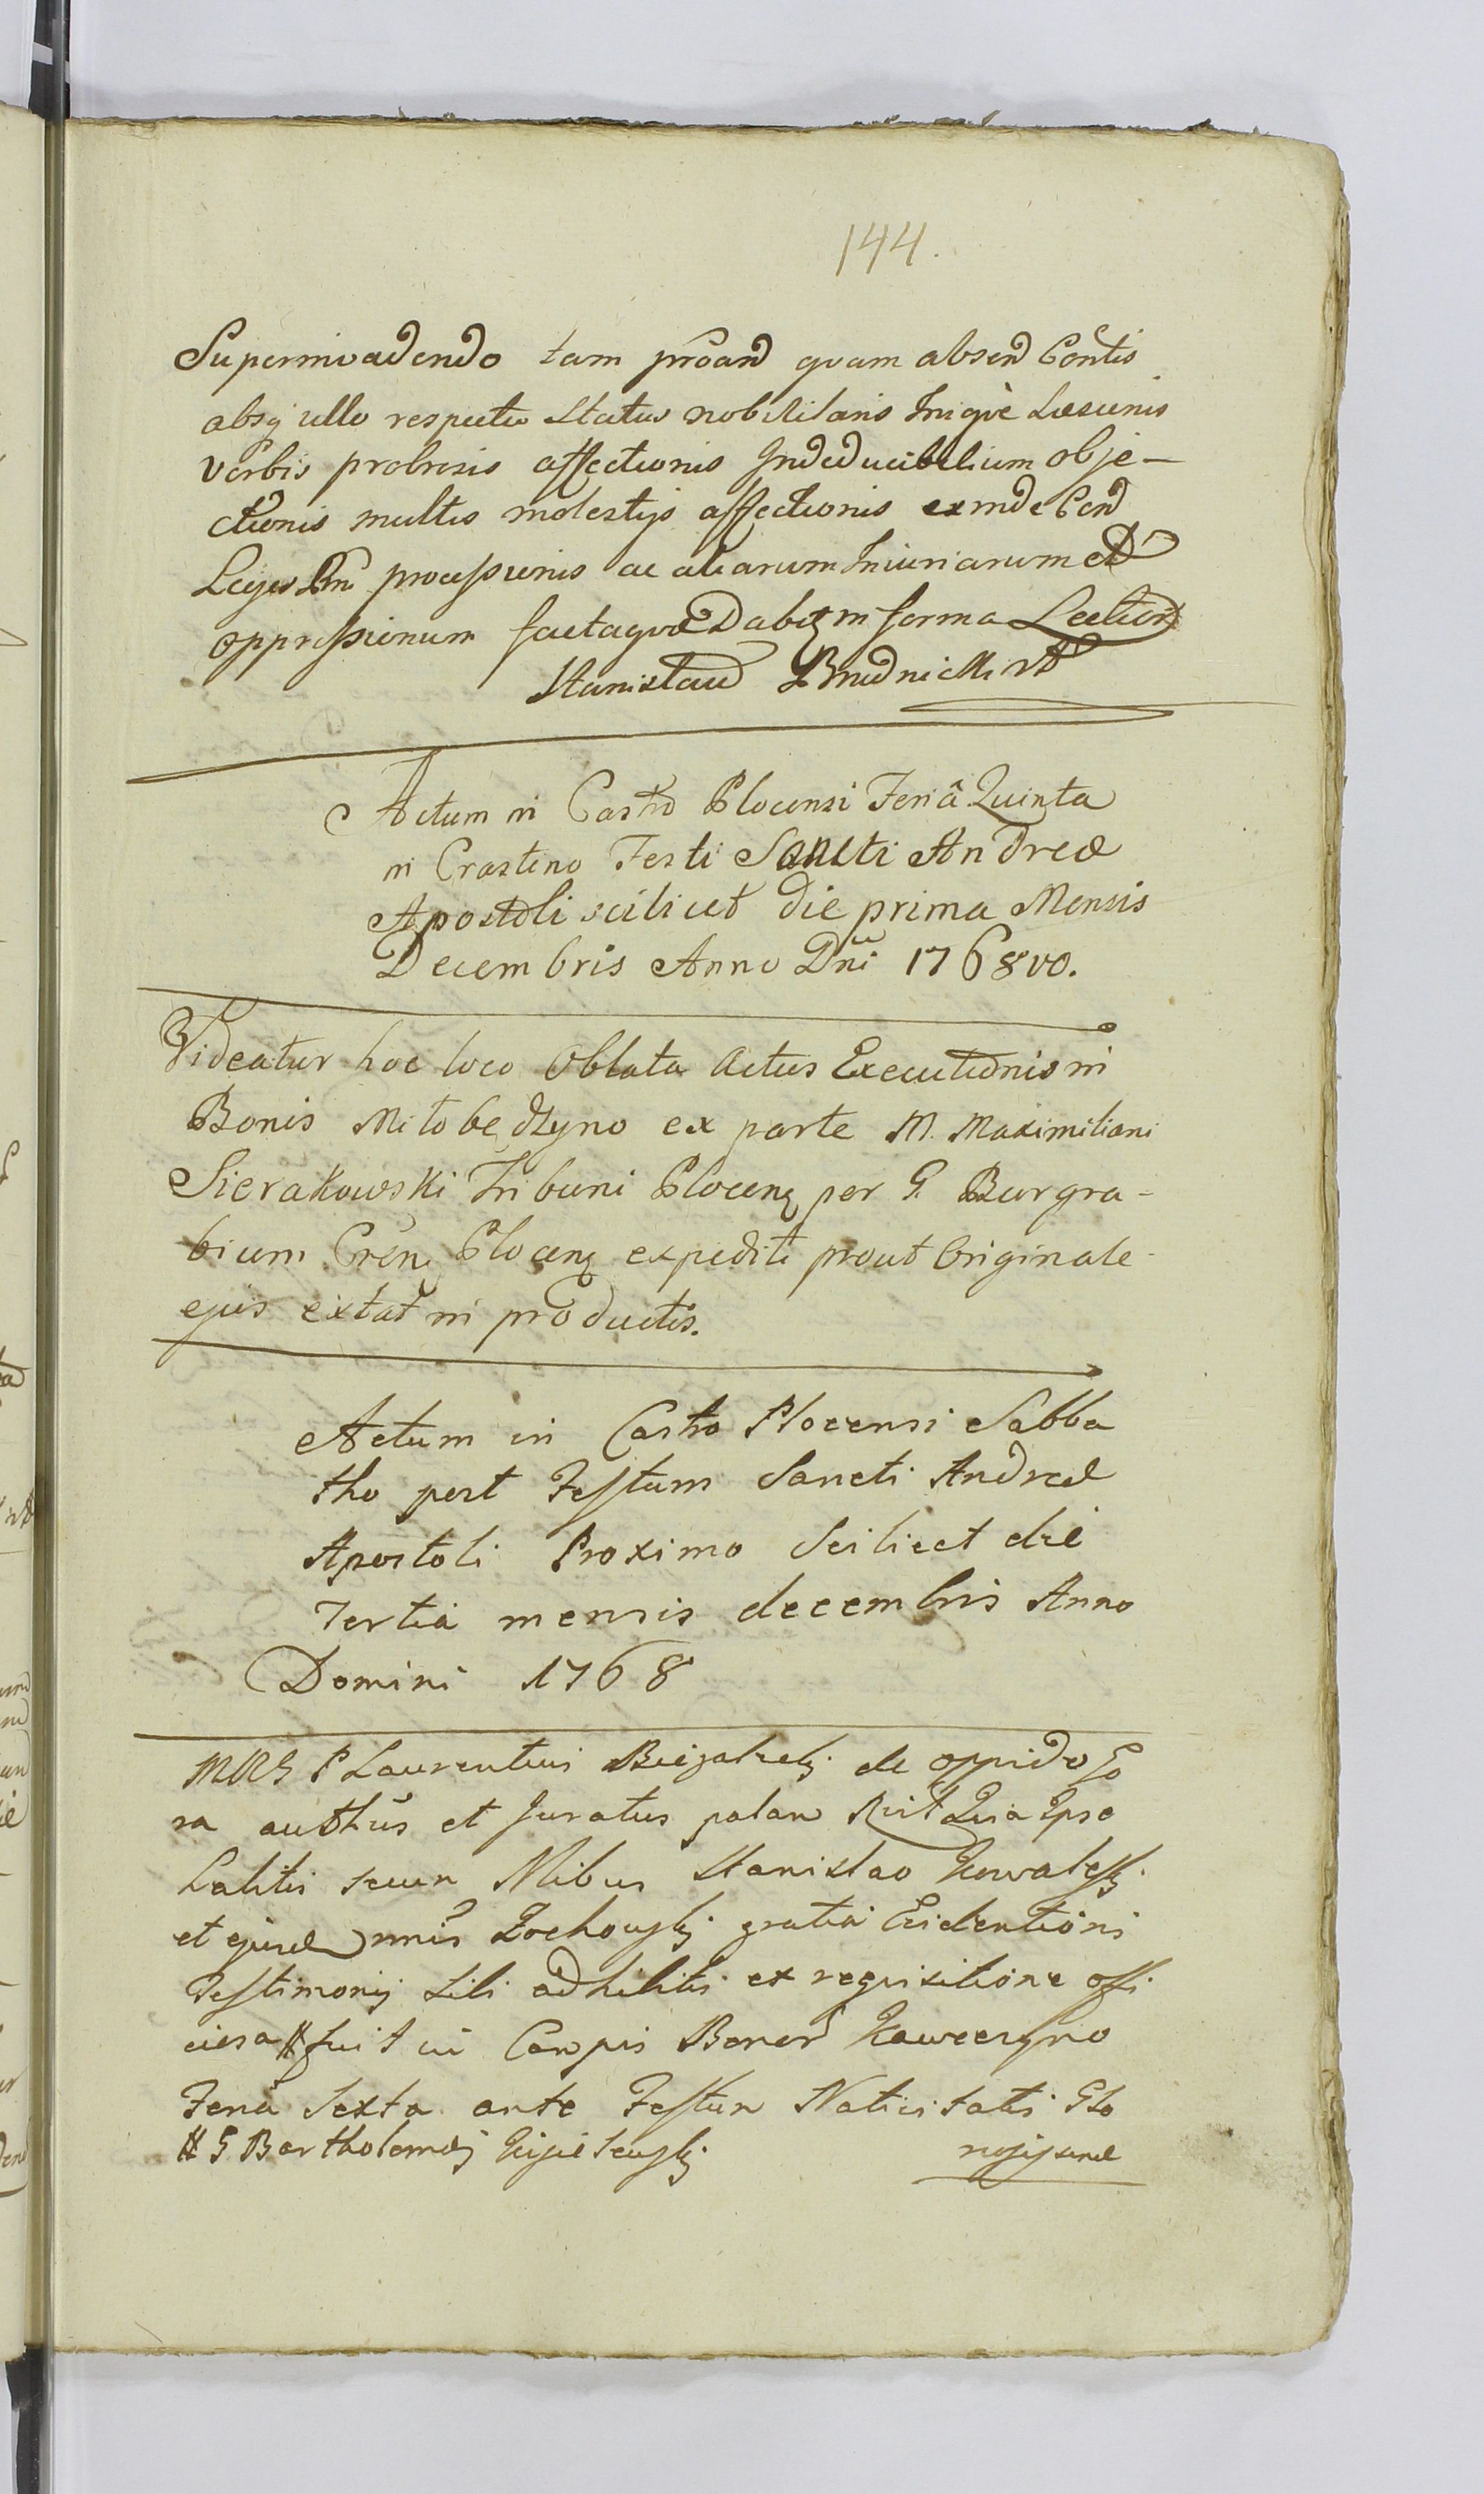 144.
Superinvadendo tam prãand quam absend Contis
absq ullo respectu Status nobilitaris Iniquè Laesionis
verbis probrosis affectionis Indeducibilium obje-
ctionis multis molestijs affectionis exinde Cend
Leges processionis ac aliarum Iniuriarum et
oppressionum factaque Dabit in forma Lection
Stanislaus Brudnicki
Actum in Castro Plocensi Feriâ Quinta
in Crastino Festi Sancti Andreae
Apostoli scilicet die prima Mensis
Decembris Anno Dni 1768vo.
Videatur hoc loco Oblata Actus Executionis in
Bonis Miłobędzyno ex parte M. Maximiliani
Sierakowski Tribuni Plocenq per G. Burgra-
bium Cren Plocenq expediti prout Originale
ejus extat in productis.
Actum in Castro Plocensi Sabba
tho post Festum Sancti Andreae
Apostoli Proximo Scilicet die
Tertia mensis decembris Anno
Domini 1768
MRG P Laurentius de oppido Go
ra authûs et Juratus palam Rcit Quia Ipse
habitis secum Nlibus Stanislao Kowalessk
et gratia Evidentioris
Testimonij sibi adhibitis ex requisitione offi
ciosa # fuit in Campis Bonor
Feria Sexta ante Festum Nativitatis Glo
# G Bartholomaei